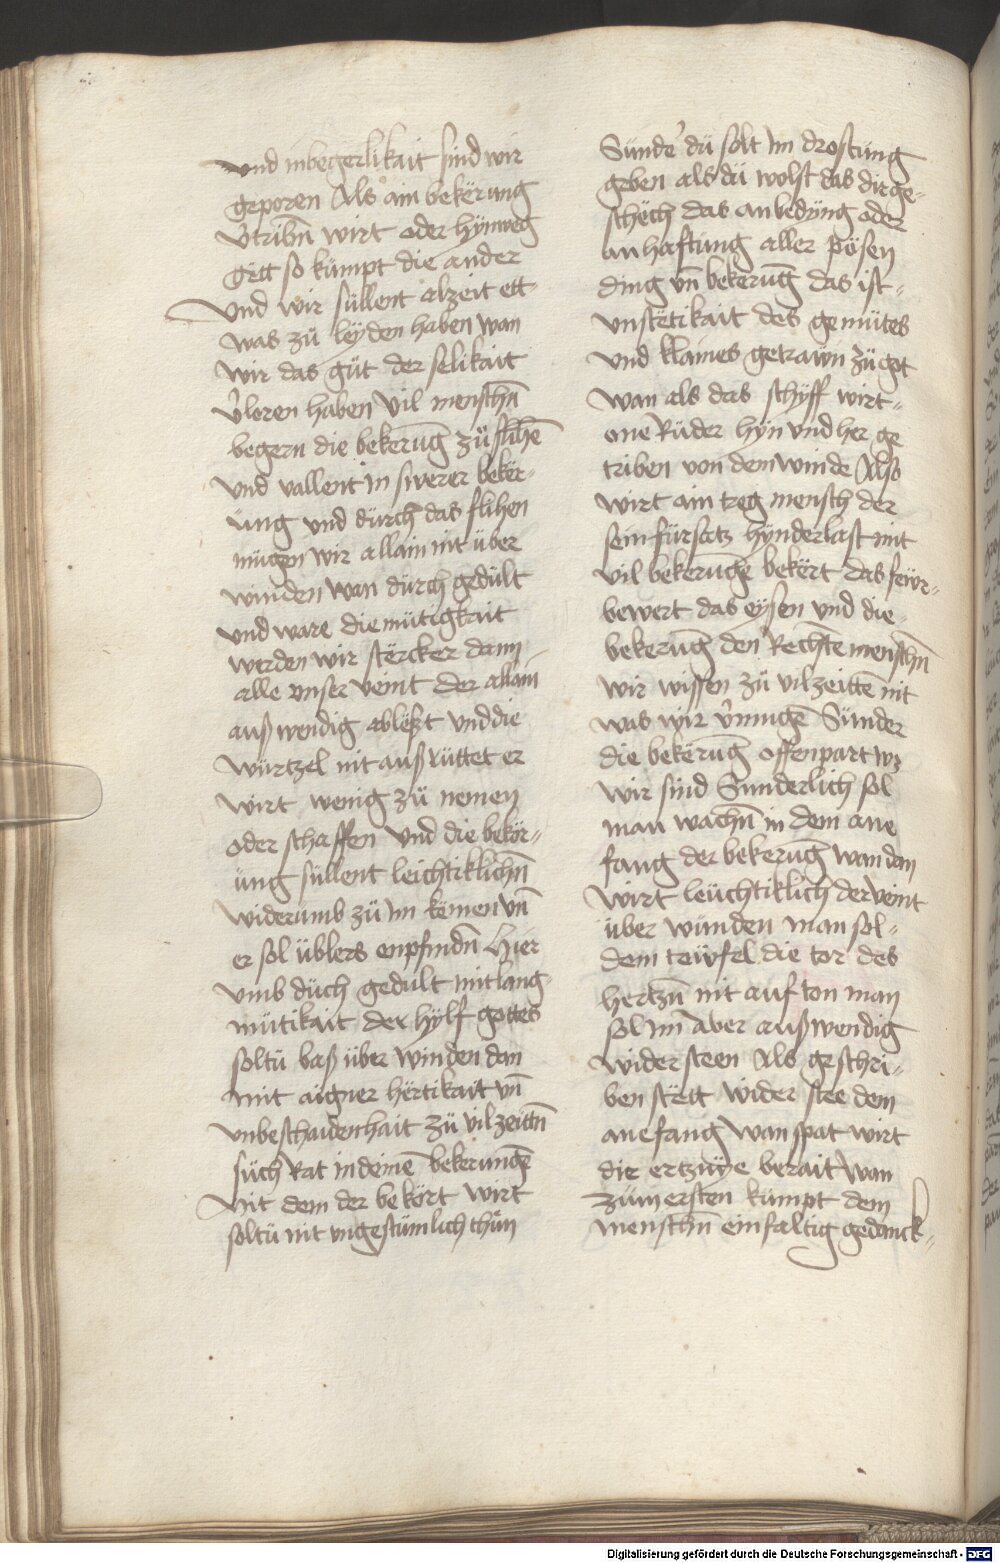 und inbegerlikait sind wir
geporen Als ain bekërung
v̓tribn̄ wirt oder hÿnweg
gëtt so kümpt die ander
Und wir süllent alzeit ett-
was zü leÿden haben wan
wir das güt der selikait
v̓loren haben Vil menschn̄
begern die bekerūg zü flihē
und vallent in swerer bekër-
üng und dürch das flihen
mügen wir allain nit über
winden wan durch gedült
und ware diemütigkait
werden wir stërcker dann
alle unser veint der allain
außwendig ablëßt und die
würtzel nit auß rüttet er
wirt wenig zü nemen
oder schaffen und die bekër-
üng süllent leichtiklichn̄
widerumb zü im kömen vn̄
er sol üblers enpfindn̄ Hier
umb düch gedult mit lang-
mütikait der hÿlf gottes
soltü baß über winden dan
mit aigner hërtikait vn̄
unbeschaidenhait zü vilzeittn̄
süch Rat in deinē bekerungē
Mit dem der bekört wirt
soltü nit ungestümlich thün
Sünder dü solt im drostüng
geben als dü wolst das dir ge-
schëch das anbedÿng oder
anhaftüng aller pösen
ding vn̄ bekerūg das ist-
unstëtikait des gemütes
und klaines getrawn zü got
wan als das schÿff wirt-
one Rüder hÿn und her ge
triben von dem winde Also
wirt ain treg mensch der
sein fürsatz hÿnderlast mit
vil bekerungē bekërt das fewr-
bewert das eÿsen und die-
bekerūg den Rechte menschn̄
wir wissen zü vilzeittē nit
was wir v̓mügē Sünder
die bekërūg offenpart wz
wir sind Sunderlich sol
man wachn̄ in dem ane
fang der bekerūg wan dan
wirt leüchtiklich der veint
über wünden man sol-
dem tewfel die tor des
hertzn̄ nit auf ton man
sol im aber außwendig
widersteen Als geschri-
ben stëtt wider stee dem
anefang wan spat wirt
die ertzneÿe berait wan
zümersten kümpt dem
menschn̄ einfaltig gedanck-
Digitalisierung gefördert durch die Deutsche Forschungsgemeinschaft - DFG